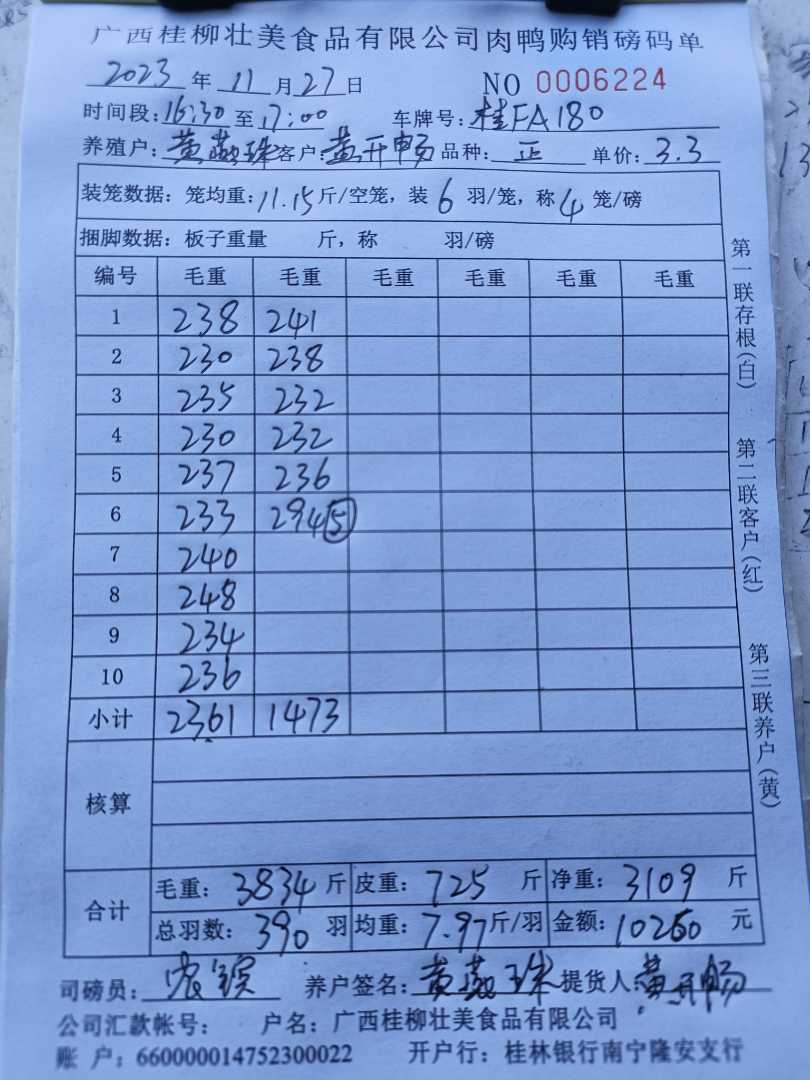 广西桂柳壮美食品有限公司肉鸭购销磅码单
2023年11月27日 NO 0006224
时间段：16:30至17:00 车牌号：桂FA180
养殖户：黄燕珠 客户：黄开畅 品种：正 单价：3.3
装笼数据：笼均重：11.15斤/空笼，装6羽/笼，称4笼/磅
捆脚数据：板子重量 斤，称 羽/磅
编号 毛重 毛重 毛重 毛重 毛重 毛重
1 238 241
2 230 238
3 235 232
4 230 232
5 237 236
6 233 294⑤
7 240
8 248
9 234
10 236
小计 2361 1473
核算
合计 毛重：3834斤 皮重：725斤 净重：3109斤
总羽数：390羽 均重：7.97斤/羽 金额：10260元
司磅员： 养户签名：黄燕珠 提货人：黄开畅
公司汇款帐号： 户名：广西桂柳壮美食品有限公司
账 户：660000014752300022 开户行：桂林银行南宁隆安支行
第一联存根（白）
第二联客户（红）
第三联养户（黄）